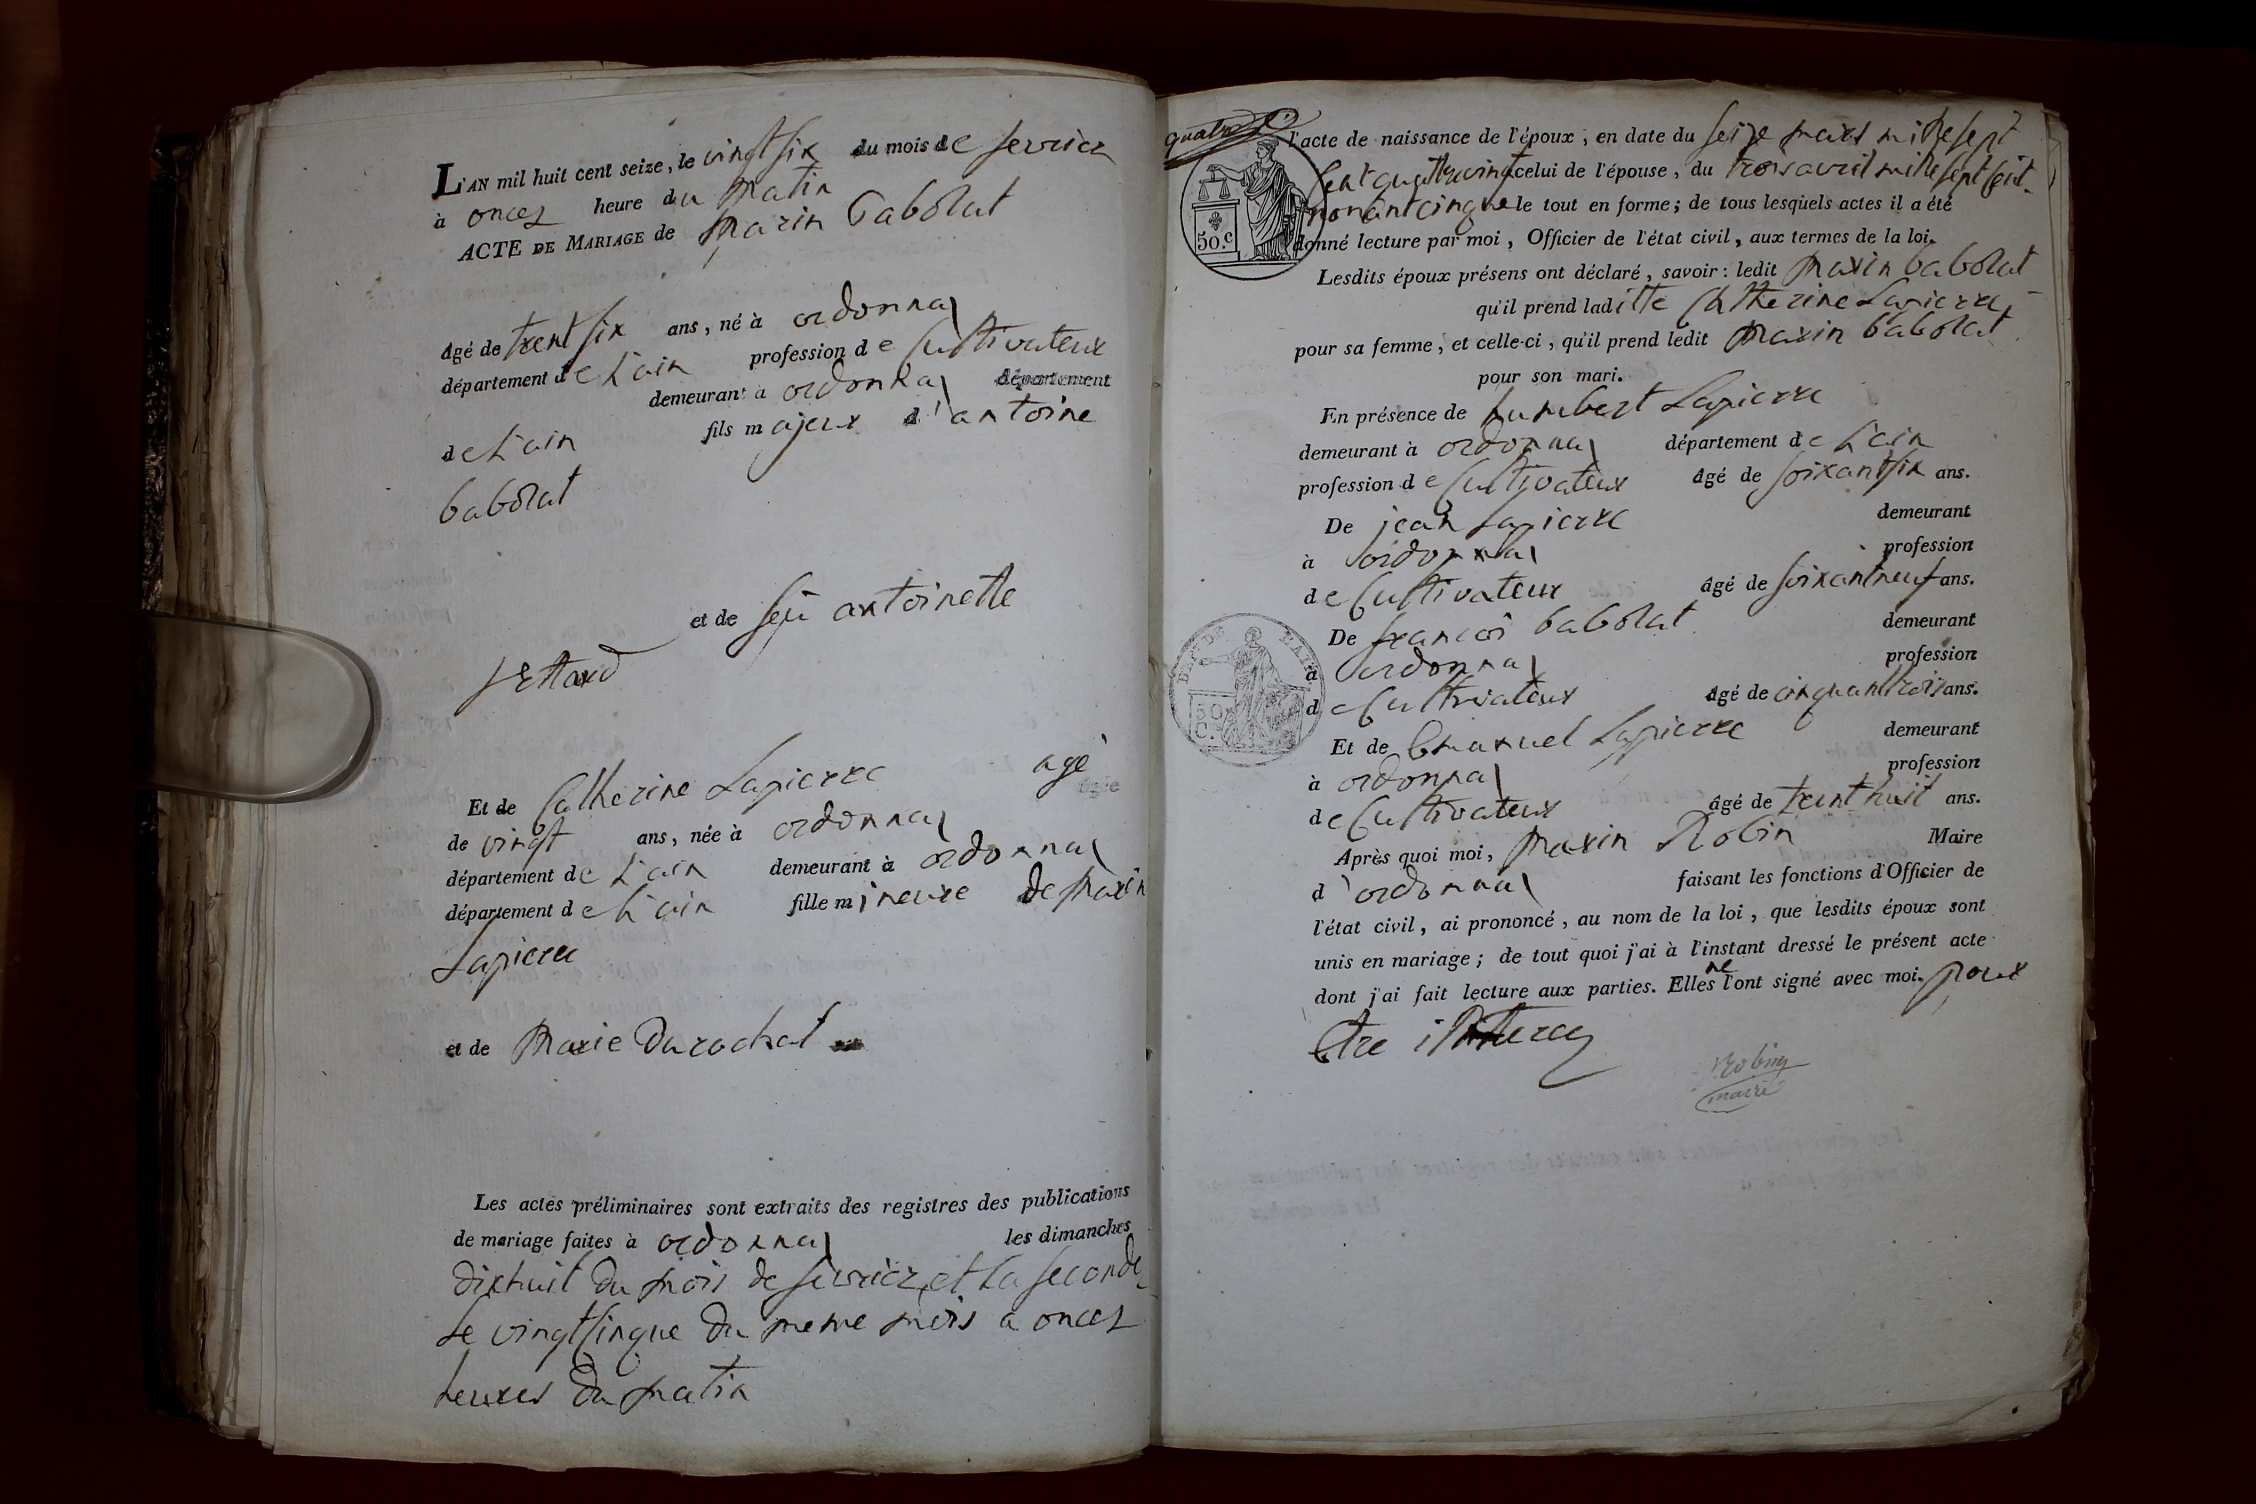 L'AN mil huit cent seize, le vingt six du mois de fevrier
à oncez heure du matin
ACTE DE MARIAGE de Marin babolat
âgé de trent six ans, né à ordonnas
département de L'ain profession de Cultivateur
demeurant à ordonnas département
de L'ain fils majeur d'antoine
babolat
et de feü antoinette
Et de Catherine Lapierre agé
de vingt ans, née à ordonnas
département de L'ain demeurant à ordonnas
département de L'ain fille mineure de Marin
Lapierre
et de Marie Durochat
Les actes préliminaires sont extraits des registres des publications
de mariage faites à ordonnas les dimanches
dixhuit du mois de fevrier et la seconde
Le vingt sinque du meme mois a oncez
heures du matin
quatre
l'acte de naissance de l'époux, en date du seize mars mille sept
Cent quattre vingt celui de l'épouse, du trois avril mille sept Cent
nonant cinque le tout en forme; de tous lesquels actes il a été
50.c
donné lecture par moi, Officier de l'état civil, aux termes de la loi.
Lesdits époux présens ont déclaré, savoir: ledit Marin babolat
qu'il prend laditte Catherine Lapierre
pour sa femme, et celle-ci, qu'il prend ledit Marin babolat
pour son mari.
En présence de humbert Lapierre
demeurant à ordonnas département de L'ain
profession de Cultivateur âgé de soixant six ans.
De jean Lapierre demeurant
à ordonnas profession
de Cultivateur âgé de soixant neuf ans.
De francoi babolat demeurant
à ordonnas profession
de Cultivateur âgé de cinquant trois ans.
50
C.
Et de Emanuel Lapierre demeurant
à ordonnas profession
de Cultivateur âgé de trent huit ans.
Après quoi moi, Marin Robin Maire
d'ordonnas faisant les fonctions d'Officier de
l'état civil, ai prononcé, au nom de la loi, que lesdits époux sont
unis en mariage; de tout quoi j'ai à l'instant dressé le présent acte
dont j'ai fait lecture aux parties. Elles ne l'ont signé avec moi. pour
Etre
Robin
maire